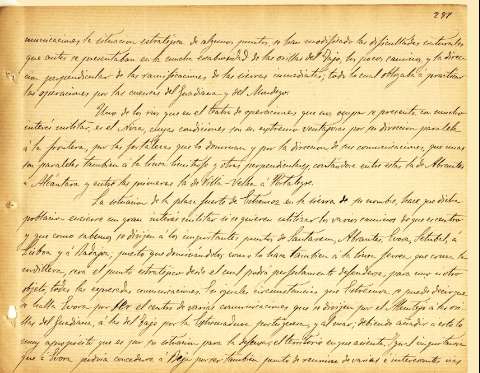 281
municaciones la situacion estratégica de algunos puntos, se han modificado las dificultades naturales
que antes se presentaban en la mucha escabrosidad de las orillas del Tajo, los pocos caminos, y la direc-
cion perpendicular de las ramificaciones de las sierras inmediatas; todo lo cual obligaba a practicar
las operaciones por las cuencas del Guadiana y del Mondego.
Uno de los rios que en el teatro de operaciones que nos ocupa se presenta con mucho
interés militar, es el Niza, cuyas condiciones son en extremo ventajosas por su direccion paralela
á la frontera, por las fortalezas que lo dominan y por la direccion de sus comunicaciones, que unas
son paralelas tambien á la linea limitrofe y otras perpendiculares, contandose entre estas la de Abrantes
á Alcántara y entre las primeras la de Villa-Velha á Portalegre.
La situacion de la plaza fuerte de Estremoz en la sierra de su nombre, hace que dicha
poblacion encierre un gran interés militar si se quieren utilizar los varios caminos de que es centro
y que como sabemos se dirijen á los importantes puntos de Santarem, Abrantes, Evora, Setubal, á
Lisboa y á Badajoz, puesto que dominandolos como lo hace tambien á la linea ferrea, que cruza la
cordillera, será el punto estratégico desde el cual podra perfectamente defenderse, para uno u otro
objeto, todas las espresadas comunicaciones. En iguales circunstancias que Estremoz, se puede decir que
se halla Evora por ser el centro de varias comunicaciones que se dirijen por el Alentejo á las ori-
llas del Guadiana, á las del Tajo por la Estremadura portuguesa, y al mar, debiendo añadir a esto lo
muy aproposito que es por su situacion para la defensa del territorio en que asienta. Igual importancia
que á Evora podria concederse á Beja por ser tambien punto de reunion de varias é interesantes vias